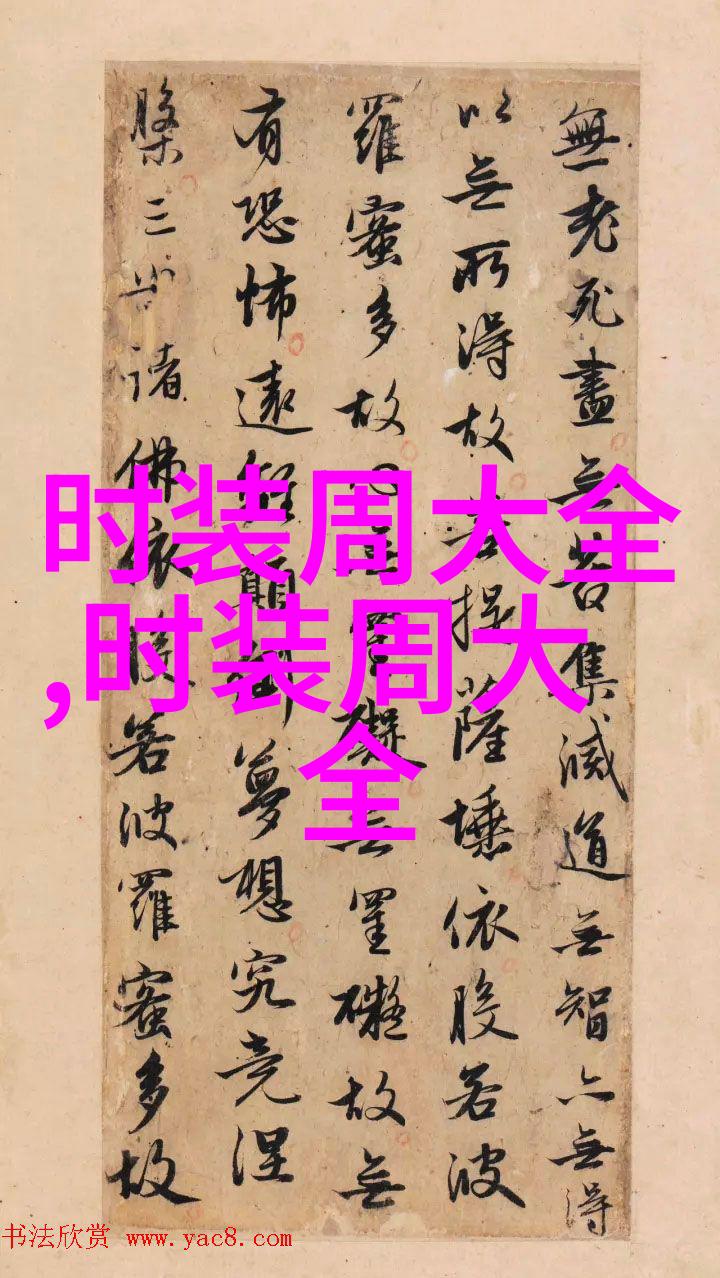 無老死盡无苦集滅道无智亦无得
以无所得故菩提薩埵依般若波
羅蜜多故心无罣礙无罣礙故无
有恐怖遠離顛倒夢想究竟涅
槃三世諸佛依般若波羅蜜多故
时装周大全
,时装周大
全
书法欣赏 www.yac8.com